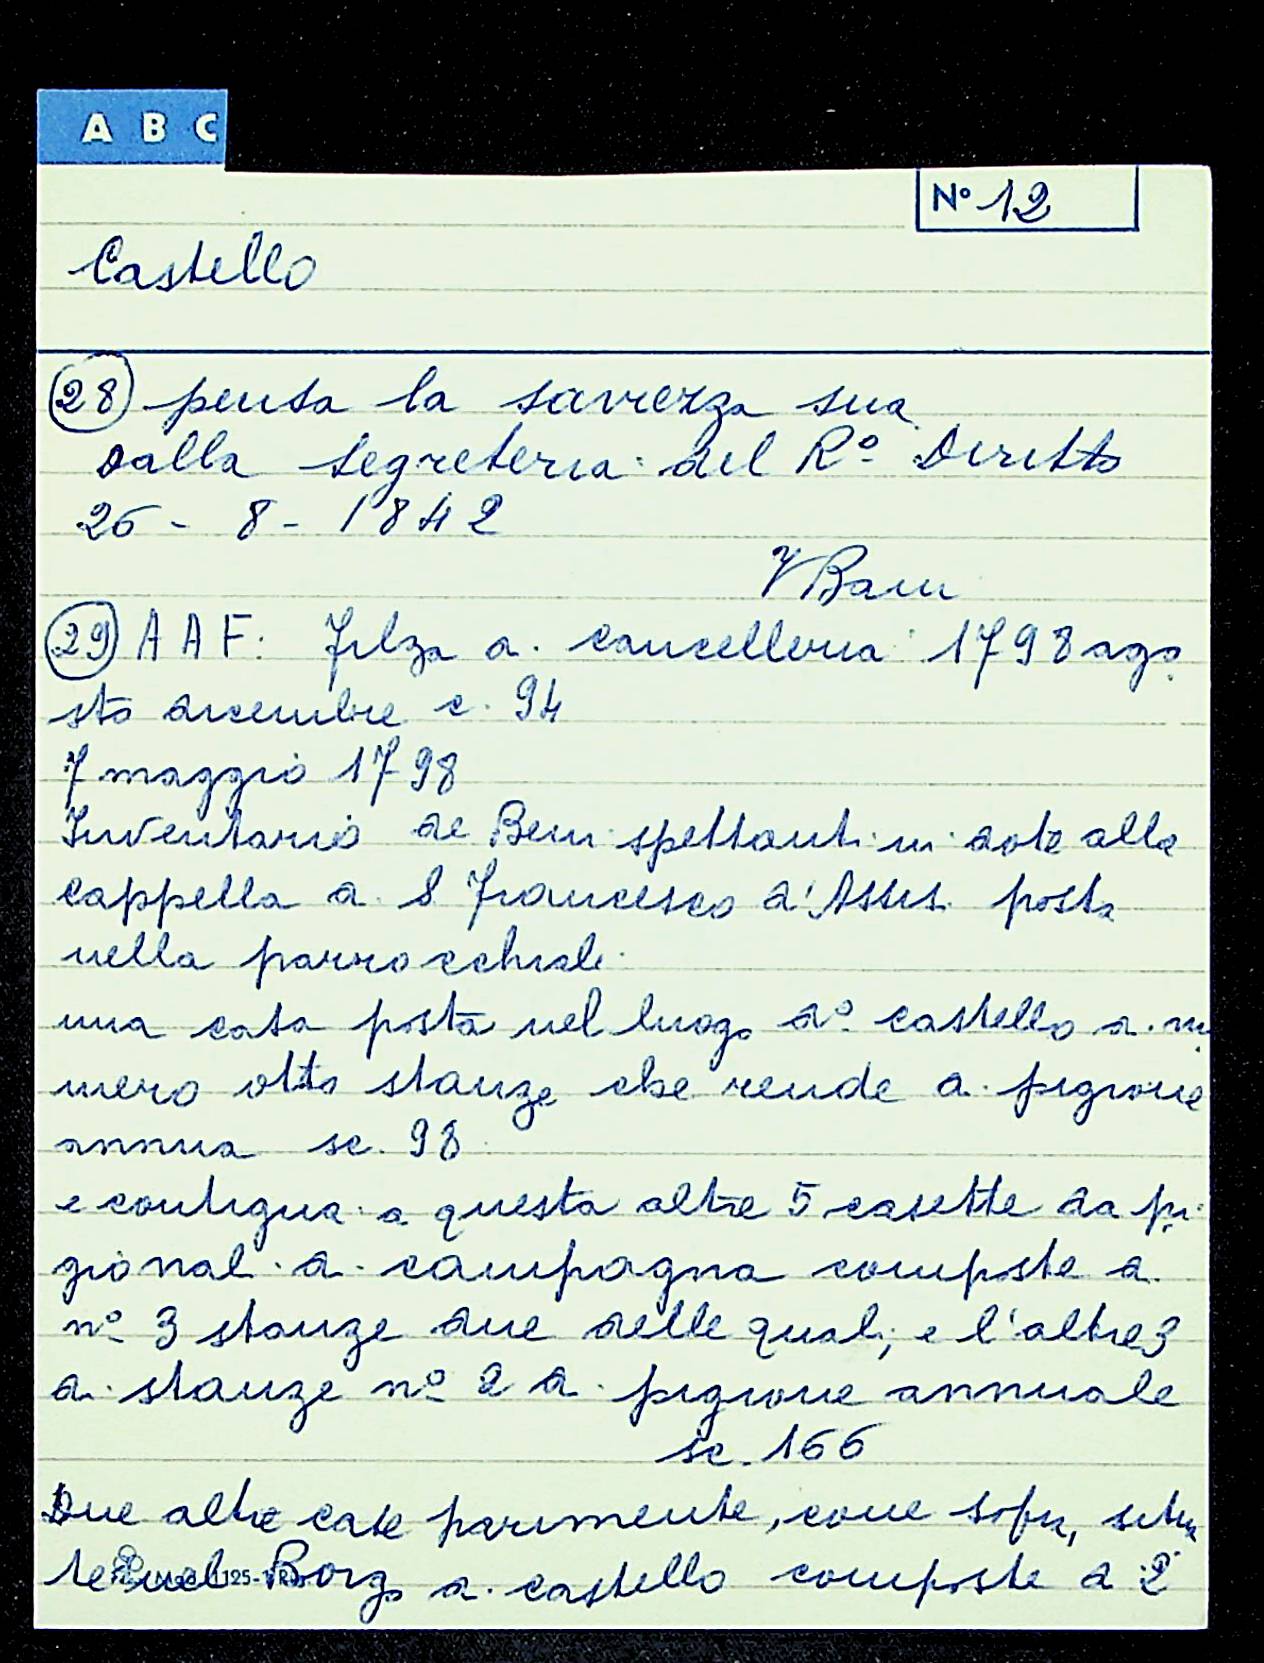 A B C
N° 12
Castello
28 pensa la saviezza sua
Dalla Segreteria del R° Diritto
26 - 8 - 1842
V Bani
29 A A F: Filza di cancelleria 1798 ago
sto dicembre c. 94
7 maggio 1798
Inventario de Beni spettanti in dote alla
cappella di S Francesco d'Assisi posta
nella parrocchiale
una casa posta nel luogo d° castello di nu
mero otto stanze che rende di pigione
annua sc. 98
e contigua a questa altre 5 casette da pi
gionali di campagna composte di
n° 3 stanze due delle quali, e l'altre 3
di stanze n° 2 di pigione annuale
sc. 166
Due altre case parimente, come sopra, situa
te nel Borgo di castello composte di 2